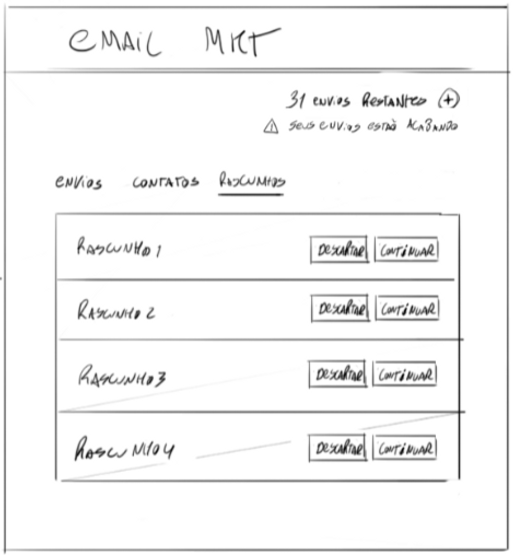 EMAIL MKT
31 ENVIOS RESTANTES +
! SEUS ENVIOS ESTÃO ACABANDO
ENVIOS CONTATOS RASCUNHOS
RASCUNHO 1 DESCARTAR CONTINUAR
RASCUNHO 2 DESCARTAR CONTINUAR
RASCUNHO 3 DESCARTAR CONTINUAR
RASCUNHO 4 DESCARTAR CONTINUAR